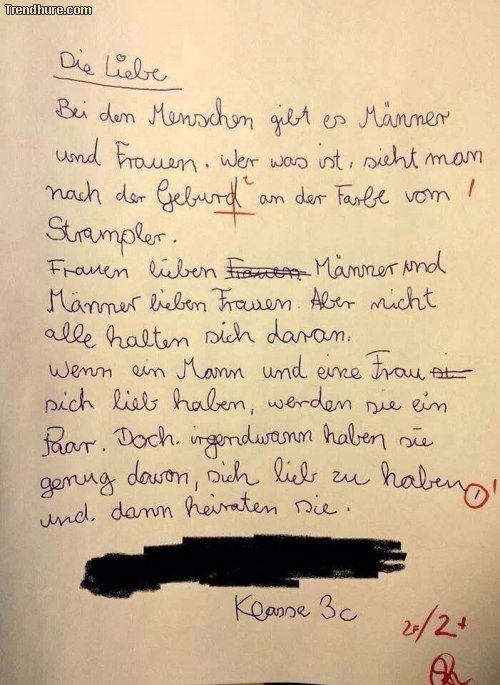 Trendhure.com
Die Liebe
Bei den Menschen gibt es Männer
und Frauen. Wer was ist, sieht man
nach der Geburd an der Farbe vom
Strampler.
Frauen lieben Frauen Männer und
Männer lieben Frauen. Aber nicht
alle halten sich daran.
Wenn ein Mann und eine Frau si
sich lieb haben, werden sie ein
Paar. Doch irgendwann haben sie
genug davon, sich lieb zu haben
und dann heiraten sie.
Klasse 3c
2+